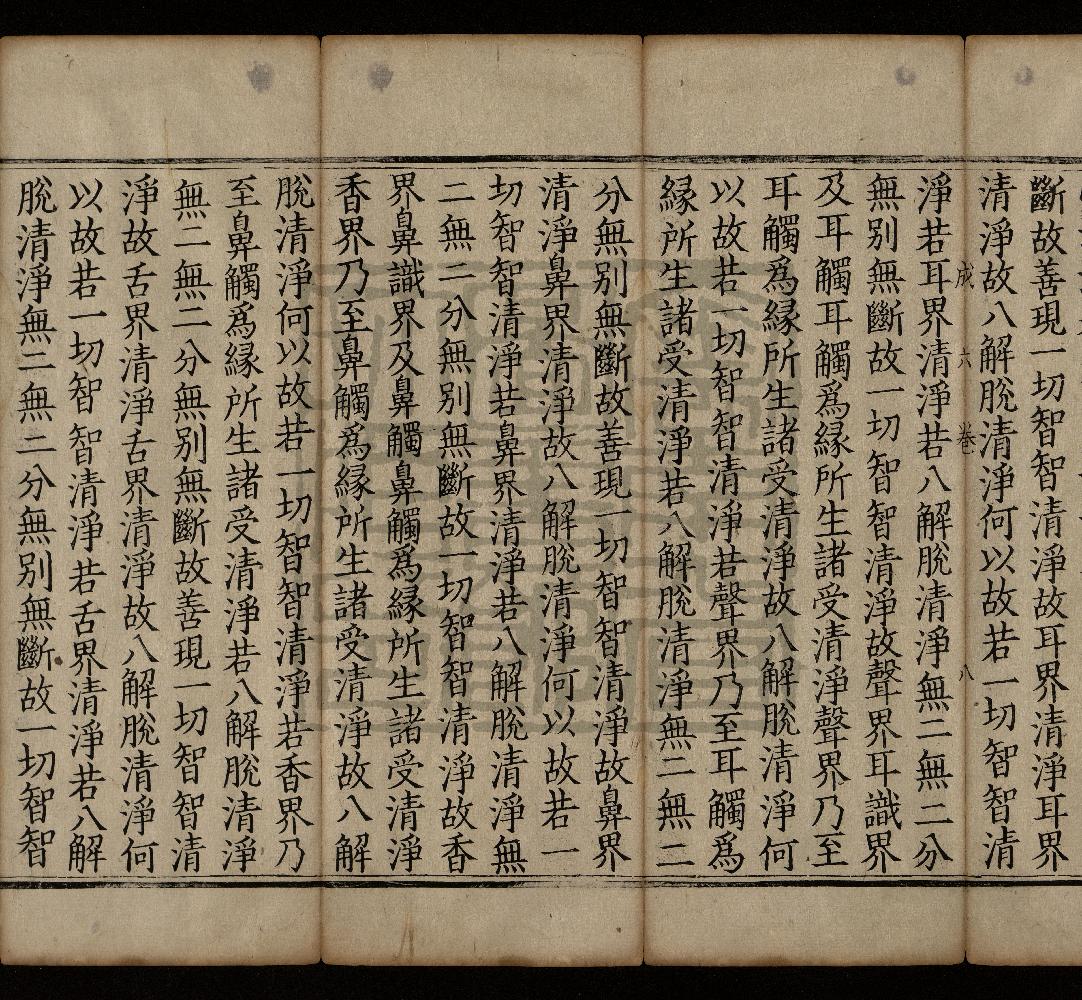 斷故善現一切智智清淨故耳界清淨耳界
清淨故八解脫清淨何以故若一切智智清
成 六 卷 八
淨若耳界清淨若八解脫清淨無二無二分
無別無斷故一切智智清淨故聲界耳識界
及耳觸耳觸爲緣所生諸受清淨聲界乃至
耳觸爲緣所生諸受清淨故八解脫清淨何
以故若一切智智清淨若聲界乃至耳觸爲
緣所生諸受清淨若八解脫清淨無二無二
分無別無斷故善現一切智智清淨故鼻界
清淨鼻界清淨故八解脫清淨何以故若一
切智智清淨若鼻界清淨若八解脫清淨無
二無二分無別無斷故一切智智清淨故香
界鼻識界及鼻觸鼻觸爲緣所生諸受清淨
香界乃至鼻觸爲緣所生諸受清淨故八解
脫清淨何以故若一切智智清淨若香界乃
至鼻觸爲緣所生諸受清淨若八解脫清淨
無二無二分無別無斷故善現一切智智清
淨故舌界清淨舌界清淨故八解脫清淨何
以故若一切智智清淨若舌界清淨若八解
脫清淨無二無二分無別無斷故一切智智